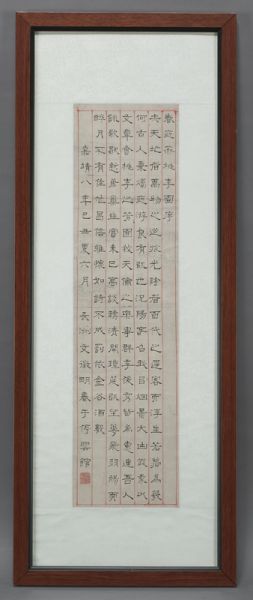 春夜宴桃李園序
夫天地者萬物之逆旅光陰者百代之過客而浮生若夢爲歡幾
何古人秉燭夜游良有以也況陽春召我以烟景大塊假我以
文章會桃李之芳園敘天倫之樂事群季俊秀皆爲惠連吾人
詠歌獨慚康樂幽賞未已高談轉清開瓊筵以坐華飛羽觴而
醉月不有佳作何伸雅懷如詩不成罰依金谷酒數
嘉靖八年己丑夏六月 長洲文徵明書于停雲館